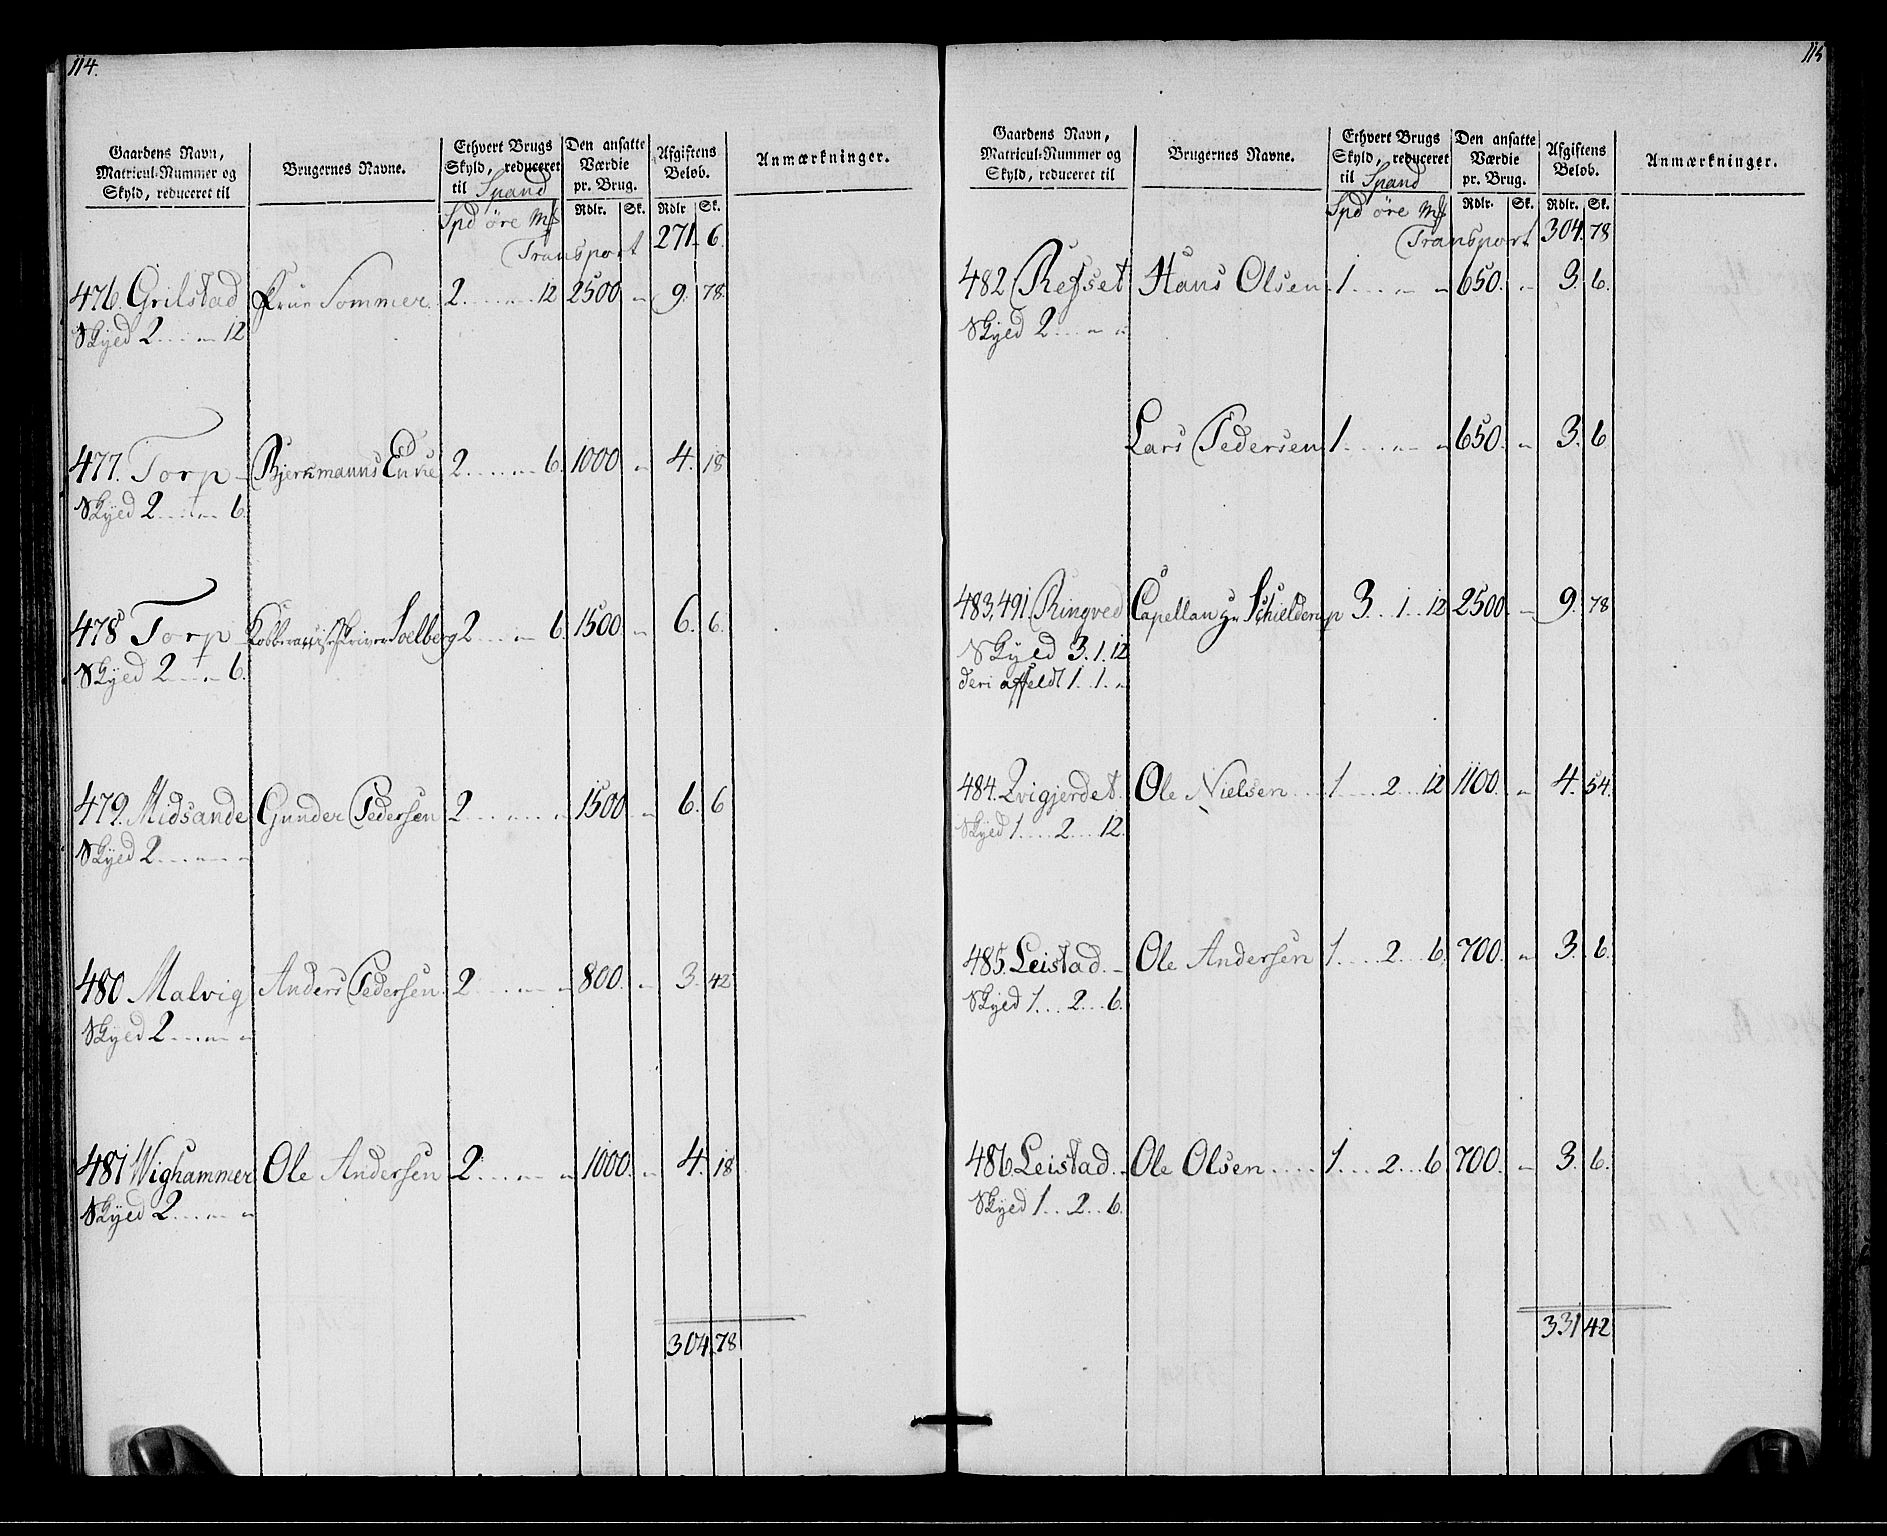 114.
Gaardens Navn,
Matricul-Nummer og
Skyld, reduceret til
Brugernes Navne.
Ethvert Brugs
Skyld, reduceret
til Spand
Den ansatte
Værdie
pr. Brug.
Afgiftens
Beløb.
Anmærkninger.
Rdlr. Sk. Rdlr. Sk.
Spd öre Mk
Transport 271. 6.
476. Grilstad Frue Sommer. 2 ..... 12 2500 " 9. 78.
Skyed 2 .... " 12
477. Torp Bjerkmanns Enke 2 ..... " 6. 1000 " 4. 18
Skyed 2 .... " 6.
478 Torp Kobberværkskriver Soelberg 2 .... " 6. 1500. " 6. 6.
Skyed 2 .... " 6.
479. Midsande Gunder Pedersen 2 ...... " 1500 " 6. 6
Skyed 2 ..... "
480 Malvig Anders Pedersen 2 ...... " 800. " 3. 42
Skyed 2 ..... "
481 Wighammer Ole Andersen 2 ...... " 1000. " 4. 18
Skyed 2 ..... "
304. 78
115
Gaardens Navn,
Matricul-Nummer og
Skyld, reduceret til
Brugernes Navne.
Ethvert Brugs
Skyld, reduceret
til Spand
Den ansatte
Værdie
pr. Brug.
Afgiftens
Beløb.
Anmærkninger.
Rdlr. Sk. Rdlr. Sk.
Spd öre Mk
Transport 304. 78
482 Refset Hans Olsen 1 .... " " 650. " 3. 6.
Skyed 2 .... " "
Lars Pedersen 1 ..... " " 650. " 3. 6
483, 491. Ringved Capellan Hr Schielderup 3 .. 1 .. 12 2500. " 9. 78
Skyed 3. 1. 12
deri affeldt 1. 1. "
484. Qvigjerdet. Ole Nielsen ... 1 .... 2 .. 12 1100. " 4. 54.
Skyed 1 .... 2 ... 12.
485. Leistad. Ole Andersen 1 .... 2 ... 6. 700. " 3. 6.
Skyed 1 ... 2 ... 6.
486. Leistad. Ole Olsen ..... 1 ... 2 ... 6. 700. " 3. 6.
Skyed 1 .. 2 .. 6.
331 42